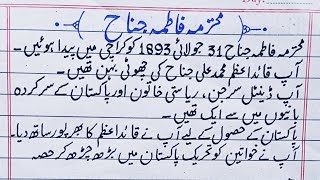 ﴿ محترمہ فاطمہ جناح ﴾
محترمہ فاطمہ جناح 31 جولائی 1893 کو کراچی میں پیدا ہوئیں۔
آپ قائداعظم محمد علی جناح کی چھوٹی بہن تھیں۔
آپ ڈینٹل سرجن، ریاستی خاتون اور پاکستان کے سرکردہ
بانیوں میں سے ایک تھیں۔
پاکستان کے حصول کے لیے آپ نے قائداعظم کا بھرپور ساتھ دیا۔
آپ نے خواتین کو تحریک پاکستان میں بڑھ چڑھ کر حصہ